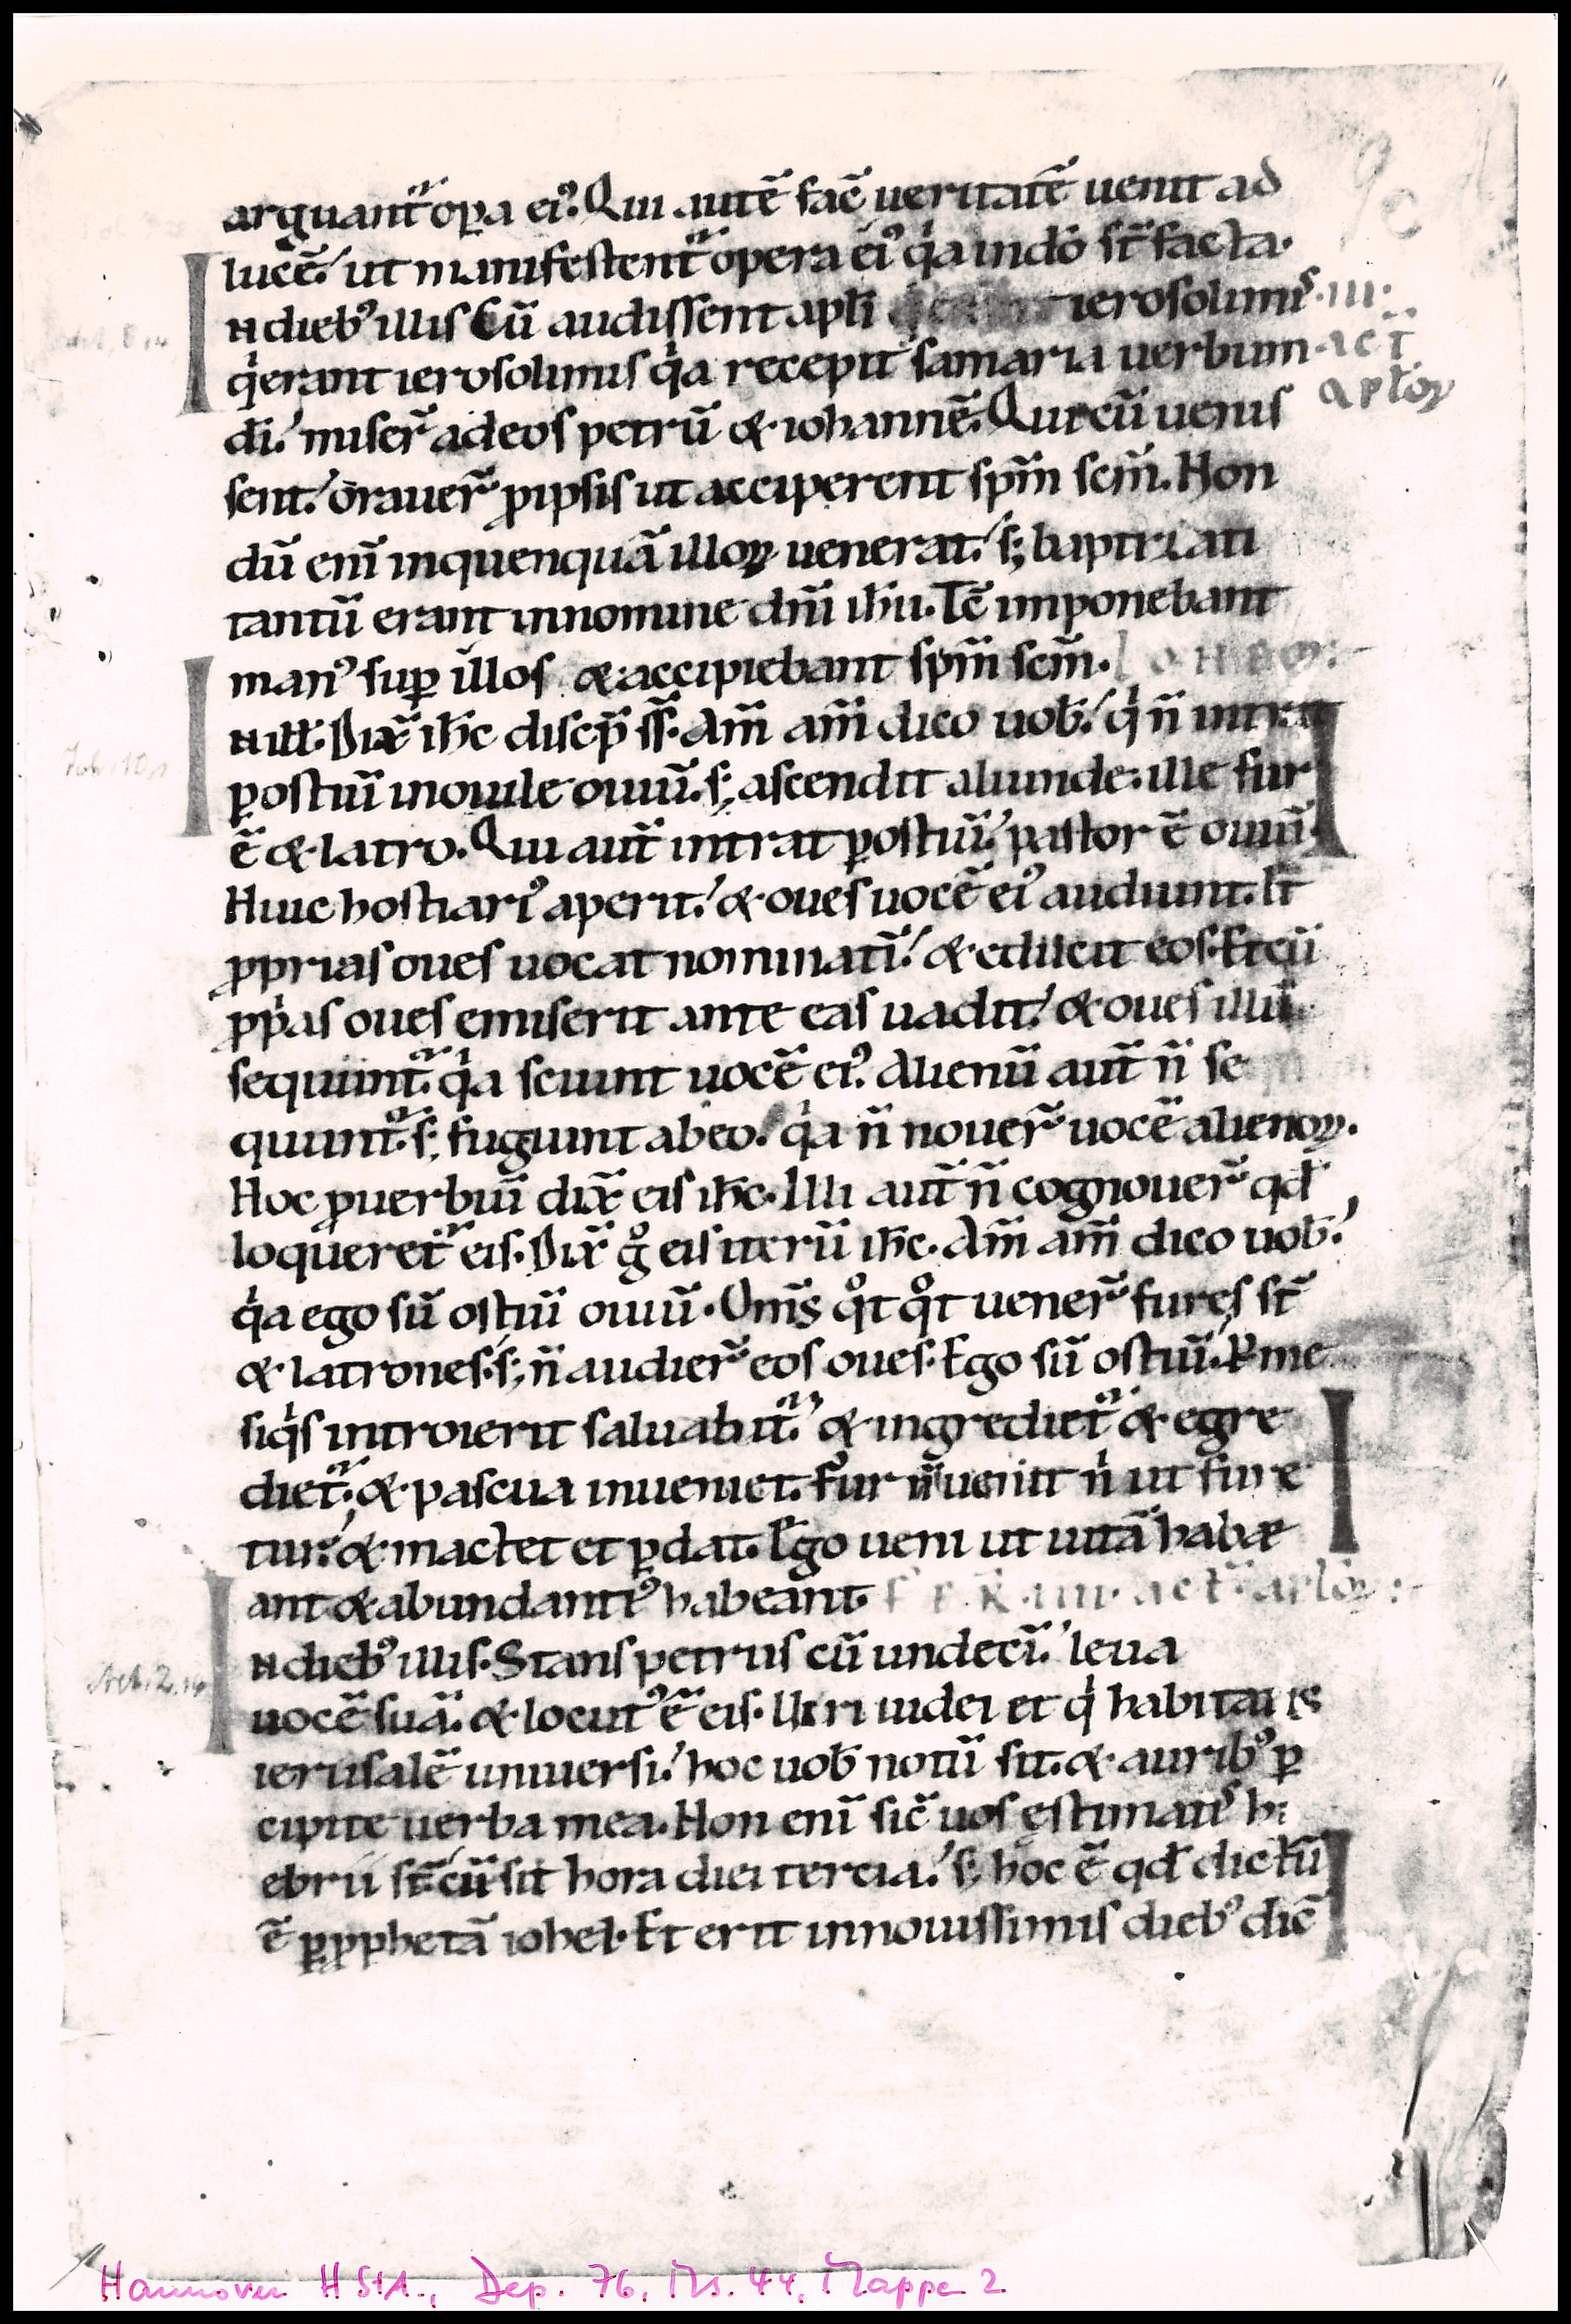 arguant᷑ oꝑa ei᷒. Qui autē fac̄ ueritatē uenit ad
lucē. ut manifestent᷑ opera ei᷒ qͥa in dō st̄ facta.
IN dieb᷒ illis Cū audissent apl̄i ierosolimis .III.
qͥ erant ierosolimis qͥa recepit samaria uerbum act̄
dī. miser̄ ad eos petrū & iohannē. Qui cū uenis aplōꝝ
sent. orauer̄ ꝓ ipsis ut acciperent sp̄m scm̄. Non
dū enī in quenquā illoꝝ uenerat. s; baptizati
tantū erant in nomine dn̄i ih̄u. Tc̄ imponebant
man᷒ suꝑ illos & accipiebant sp̄m scm̄.
IN ill̄. Dix̄ ih̄c discip̄ ss̄. Am̄ am̄ dico uob̄. qͥ n̄ intrat
ꝑ ostiū in ouile ouiū. s; ascendit aliunde. ille fur
ē & latro. Qui aut̄ intrat ꝑ ostiū. pastor ē ouiū.
Huic hostiari᷒ aperit. & oues uocē ei᷒ audiunt. Et
ꝓprias oues uocat nominatī. & educit eos. Et cū
ꝓpͥas oues emiserit ante eas uadit. & oues illū
sequunt᷑. qͥa sciunt uocē ei᷒. Alienū aut̄ n̄ se
quunt᷑. s; fugiunt ab eo. qͥa n̄ nouer̄ uocē alienoꝝ.
Hoc ꝓuerbiū dix̄ eis ih̄c. Illi aut̄ n̄ cognouer̄ qd̄
loqueret᷑ eis. Dix̄ gͦ eis iterū ih̄c. Am̄ am̄ dico uob̄.
qͥa ego sū ostiū ouiū. Om̄s qͦt qͦt uener̄ fures st̄
& latrones. s; n̄ audier̄ eos oues. Ego sū ostiū. P me
siqͥs introierit saluabit᷑. & ingrediet᷑ & egre
diet᷑. & pascua inueniet. Fur n̄ uenit nͥ ut fure
tur. & mactet et ꝑdat. Ego ueni ut uitā habe
ant & abundanti᷒ habeant. FR. IIII. act̄. aplōꝝ :
IN dieb᷒ illis. Stans petrus cū undecī. leua
uocē suā. & locut᷒ ē eis. Uiri iudei et qͥ habitatis
ierusalē uniuersi. hoc uob̄ notū sit. & aurib᷒ ꝑ
cipite uerba mea. Non enī sic̄ uos ęstimatis hi
ebrii st̄ cū sit hora diei tercia. s; hoc ē qd̄ dictū
ē ꝑ ꝓphetā iohel. Et erit in nouissimis dieb᷒ dic̄
Joh. 10,1
Act. 2,14
Hannover HStA., Dep. 76, Ms. 44, Mappe 2